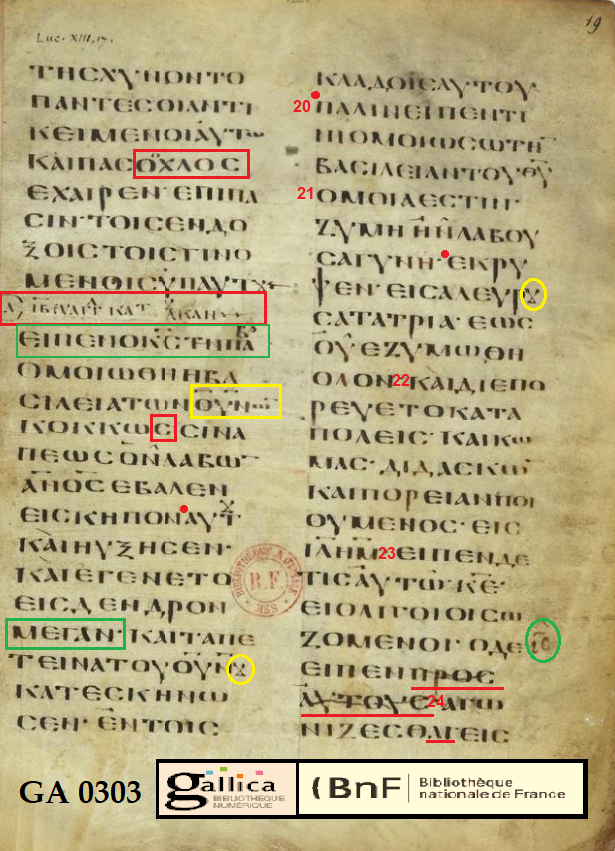 Luc. XIII, 17.
19
ΤΗϹΧΥΝΟΝΤΟ
ΠΑΝΤΕϹΟΙΑΝΤΙ
ΚΕΙΜΕΝΟΙΑΥΤω
ΚΑΙΠΑϹΟΧΛΟϹ
ΕΧΑΙΡΕΝΕΠΙΠΑ
ϹΙΝ·ΤΟΙϹΕΝΔΟ
ΞΟΙϹΤΟΙϹΓΙΝΟ
ΜΕΝΟΙϹΥΠΑΥΤȢ
ΕΙΠΕΝΟΚϹΤΗΠΑ
ΟΜΟΙΩΘΗΗΒΑ
ϹΙΛΕΙΑΤΩΝΟΥΝω
ΚΟΚΚΩϹϹΙΝΑ
ΠΕΩϹΟΝΛΑΒΩ
ΑΝΟϹΕΒΑΛΕΝ
ΕΙϹΚΗΠΟΝΑΥΤȢ
ΚΑΙΗΥΞΗϹΕΝ·
ΚΑΙΕΓΕΝΕΤΟ
ΕΙϹΔΕΝΔΡΟΝ
ΜΕΓΑΝ·ΚΑΙΤΑΠΕ
ΤΕΙΝΑΤΟΥΟΥΝȢ
ΚΑΤΕϹΚΗΝΩ
ϹΕΝ·ΕΝΤΟΙϹ
ΚΛΑΔΟΙϹΑΥΤΟΥ
20 ΠΑΛΙΝΕΙΠΕΝΤΙ
ΝΙΟΜΟΙΩϹΩΤΗ
ΒΑϹΙΛΕΙΑΝΤΟΥΘΥ
21 ΟΜΟΙΑΕϹΤΙΝ·
ΖΥΜΗΗΝΛΑΒΟΥ
ϹΑΓΥΝΗ·ΕΚΡΥ
ΨΕΝΕΙϹΑΛΕΥΡȢ
ϹΑΤΑΤΡΙΑ·ΕΩϹ
ΟΥΕΖΥΜΩΘΗ
ΟΛΟΝ·22 ΚΑΙΔΙΕΠΟ
ΡΕΥΕΤΟΚΑΤΑ
ΠΟΛΕΙϹ·ΚΑΙΚω
ΜΑϹ·ΔΙΔΑϹΚω
ΚΑΙΠΟΡΕΙΑΝΠΟΙ
ΟΥΜΕΝΟϹ·ΕΙϹ
ΙΛΗΜ 23 ΕΙΠΕΝΔΕ
ΤΙϹΑΥΤΩ·ΚΕ·
ΕΙΟΛΙΓΟΙΟΙϹω
ΖΟΜΕΝΟΙ·ΟΔΕΙϹ
ΕΙΠΕΝΠΡΟϹ
ΑΥΤΟΥϹ·24 ΑΓΩ
ΝΙΖΕϹΘΑΙΕΙϹ
BIBLIOTHÈQUE NATIONALE
R.F.
MSS
GA 0303
gallica
BIBLIOTHÈQUE
NUMÉRIQUE
(BnF
Bibliothèque
nationale de France